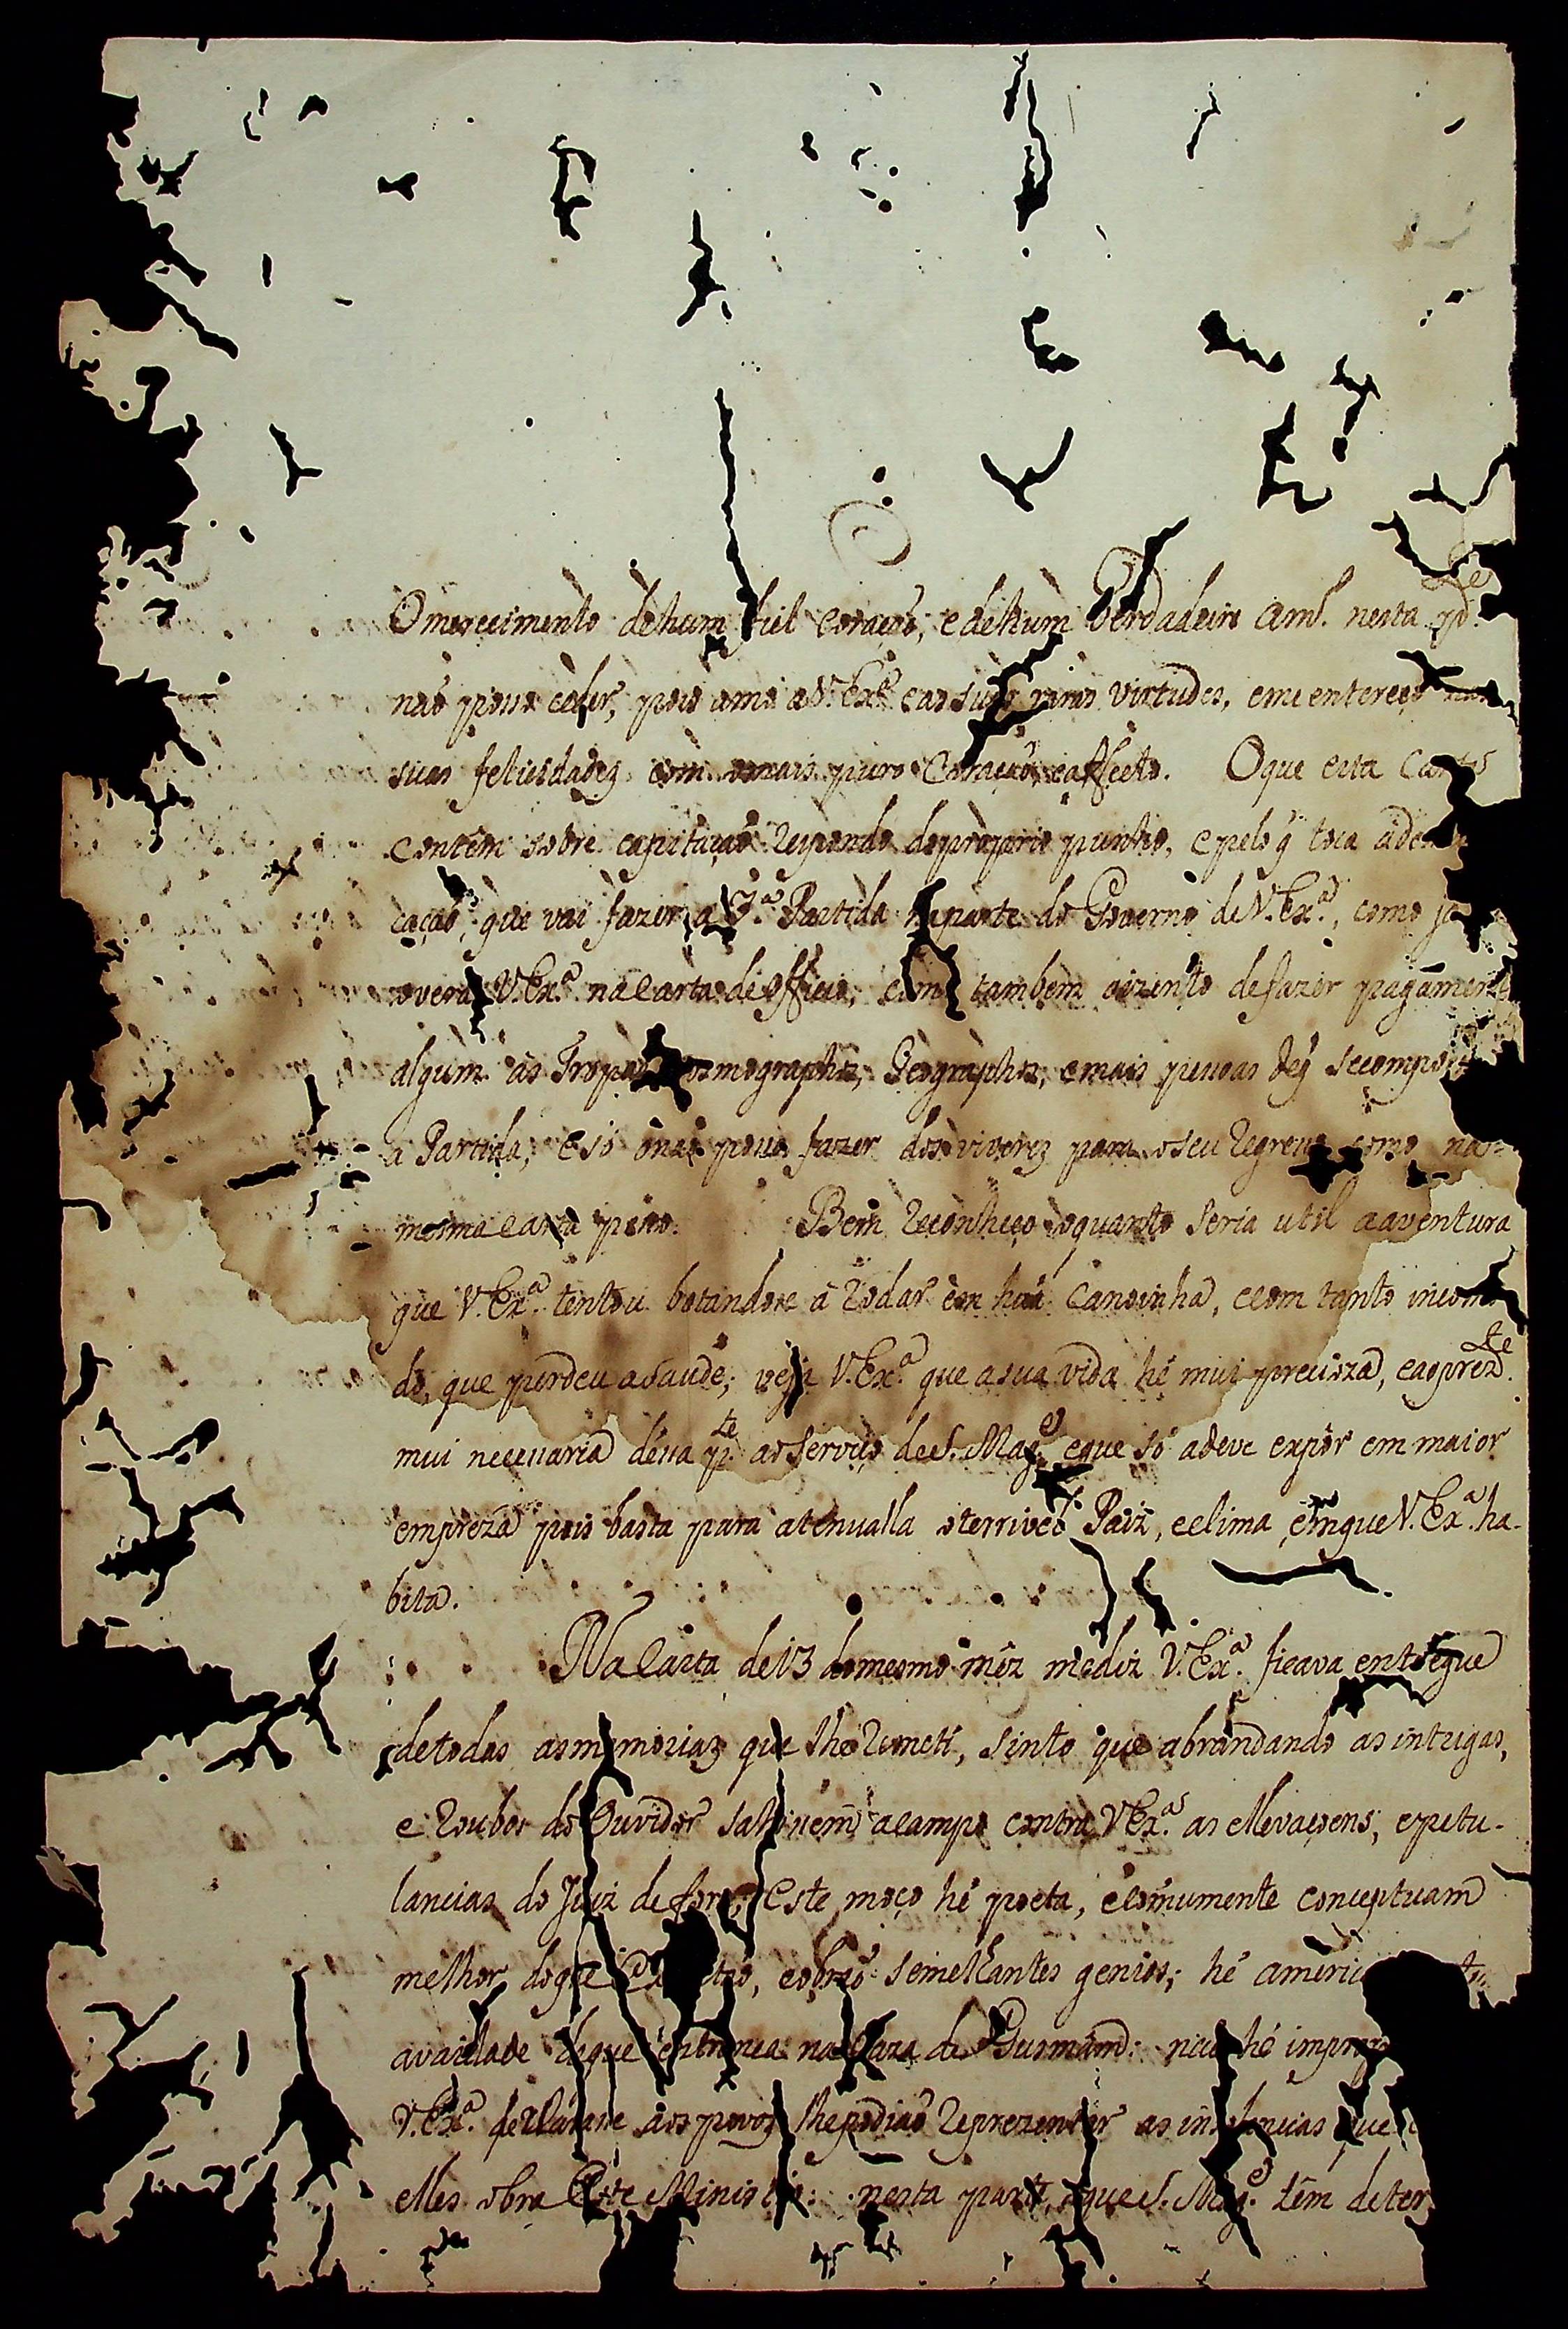 O merecimento de hum fiel coração, e de hum Verdadeiro Am.º nesta p.te
não posso ceder, pois amo a V. Ex.ª e as suas raras virtudes, e me entereço nas
suas felicidades com o mais puro Coração e affecto. O que esta Carta
contém sobre capitação respondo do proprio punho, e pelo q̃ toca a
cação, que vai fazer a 3.ª Partida na parte do Governo de V. Ex.ª, como já
verá V. Ex.ª na Carta de officio, como tambem o izento de fazer pagamento
algum ás Tropas Cosmographos, Geographos, e mais pessoas de q̃ se compoem
a Partida, e só o mais posso fazer dos viveres para o seu regresso como na
mesma Carta peço. Bem reconheço o quanto seria util a aventura
que V. Ex.ª tentou botandose a rodar em hua Canoinha, e com tanto incomo
do, que perdeu a saude; veja V. Ex.ª que a sua vida hé mui precisza, e a sprez.te
mui necessaria dessa p.te ao Serviço de S. Mag.e e que só a deve expor em maior
empreza pois basta para atenualla o terrivel Paiz, e clima, em que V. Ex.ª ha-
bita.
Na Carta de 13 do mesmo mêz me diz V. Ex.ª ficava entregue
de todas as memorias que lhe remeti, sinto que abrandando as intrigas,
e roubos do Ouvidor sahissem a campo contra V. Ex.ª as ellevaçoens, e petu-
lancias do Juiz de fora; Este moço hé poeta, e comumente conceptuam
melhor do que obrão semelhantes genios; hé
a vaidade de que entronca na Caza de Gusmam: não hé
V. Ex.ª declarase aos povos lhe podião reprezentar as insolencias que
elles obra Este Ministro: nesta parte, o que S. Mag.e têm deter